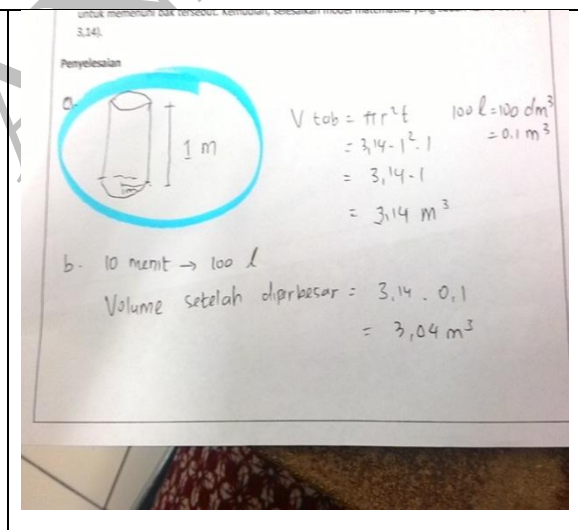 untuk memenuhi bak tersebut. Kemudian, selesaikan model matematika yang
3,14).
Penyelesaian
a.
1 m
1m
V tab = πr²t
= 3,14 - 1² . 1
= 3,14 . 1
= 3,14 m³
100 l = 100 dm³
= 0.1 m³
b. 10 menit → 100 l
Volume setelah diperbesar = 3,14 . 0,1
= 3,04 m³